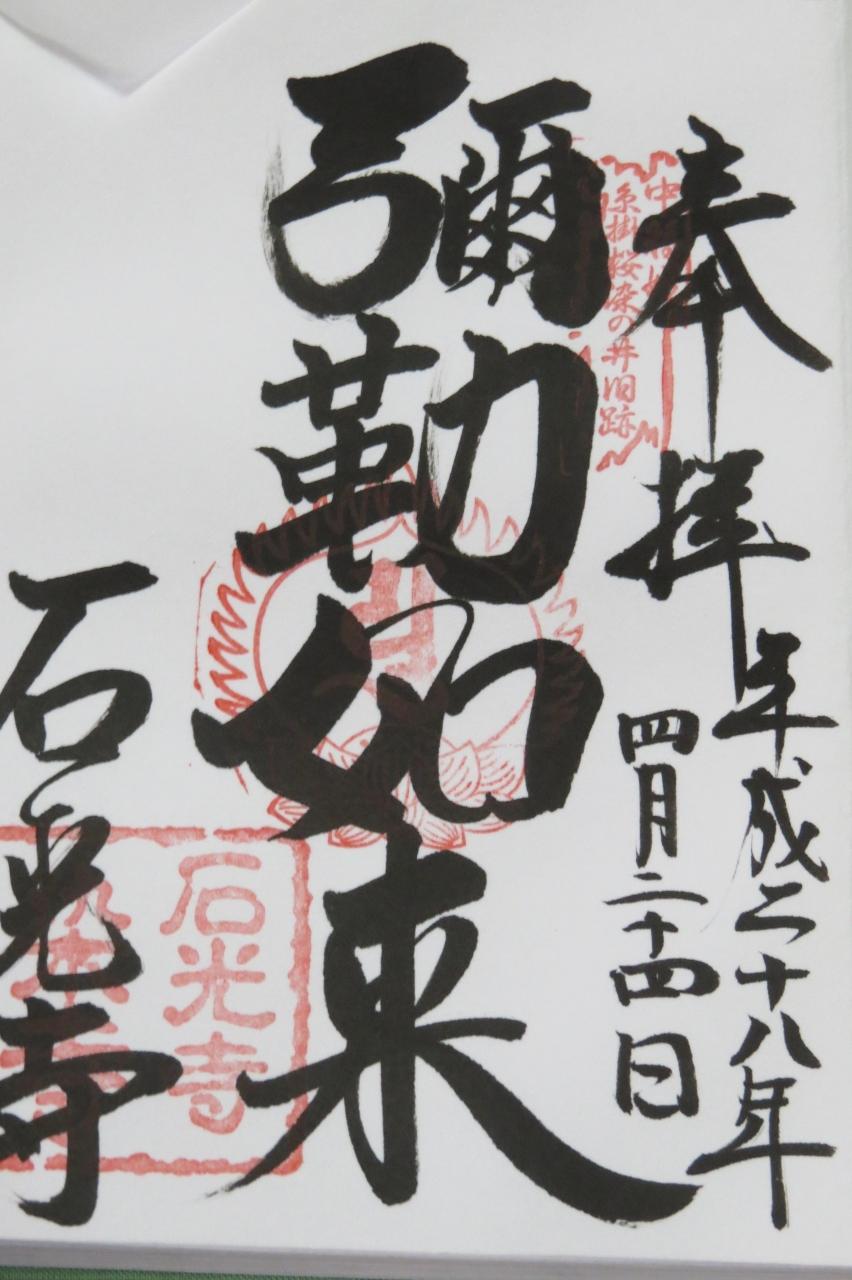 奉拝
平成二十八年
四月二十四日
糸掛桜染の井旧跡
彌勒如来
石光寺
石光寺